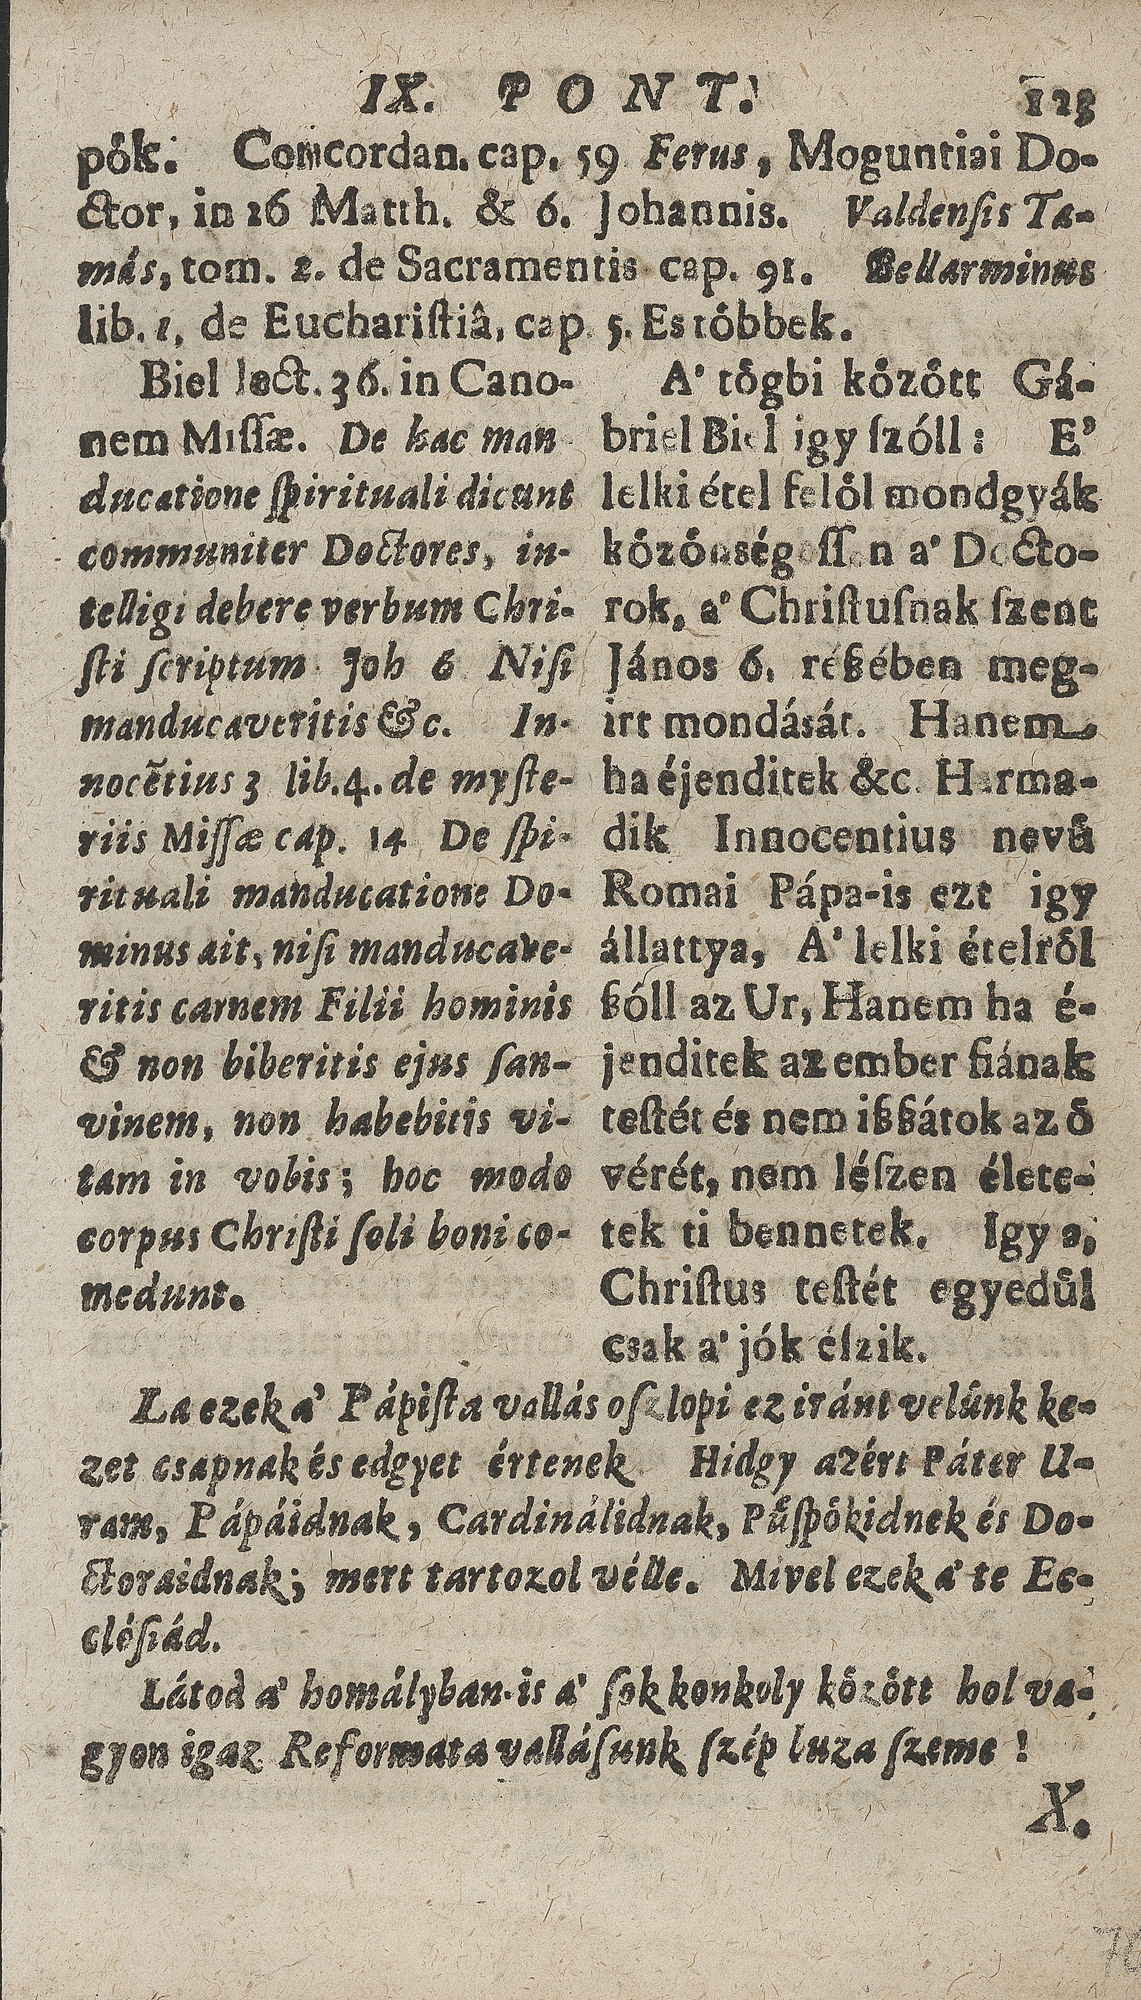 IX. PONT. 123
pők. Concordan. cap. 59 Ferus, Moguntiai Do-
ctor, in 26 Matth. & 6. Johannis. Valdenſis Ta-
más, tom. 2. de Sacramentis cap. 91. Bellarminus
lib. 1, de Euchariſtiâ, cap. 5. Es tőbbek.
Biel lect. 36. in Cano-
nem Miſſæ. De hac man
ducatione ſpirituali dicunt
communiter Doctores, in-
telligi debere verbum Chri-
ſti ſcriptum Joh 6 Niſi
manducaveritis &c. In-
nocẽtius 3 lib. 4. de myſte-
riis Miſſæ cap. 14 De ſpi-
rituali manducatione Do-
minus ait, niſi manducave-
ritis carnem Filii hominis
& non biberitis ejus ſan-
vinem, non habebitis vi-
tam in vobis; hoc modo
corpus Chriſti ſoli boni co-
medunt.
A' tőgbi kőzőtt Gá-
briel Biel igy ſzóll: E'
lelki étel felől mondgyák
kőzőnségeſſen a' Docto-
rok, a' Chriſtuſnak ſzent
János 6. réßében meg-
irt mondását. Hanem
ha éjenditek &c. Harma-
dik Innocentius nevű
Romai Pápa-is ezt igy
állattya, A' lelki ételről
ßóll az Ur, Hanem ha é-
jenditek az ember fiának
teſtét és nem ißßátok az ő
vérét, nem léſzen élete-
tek ti bennetek. Igy a,
Chriſtus teſtét egyedűl
csak a' jók éſzik.
La ezek a' Pápiſta vallás oſzlopi ez iránt velűnk ke-
zet csapnak és edgyet értenek Hidgy azért Páter U-
ram, Pápáidnak, Cardinálidnak, Pűſpőkidnek és Do-
ctoraidnak; mert tartozol vélle. Mivel ezek a' te Ec-
cléſiád.
Látod a' homályban-is a' ſok konkoly kőzőtt hol va-
gyon igaz Reformata vallásunk ſzép buza ſzeme!
X.